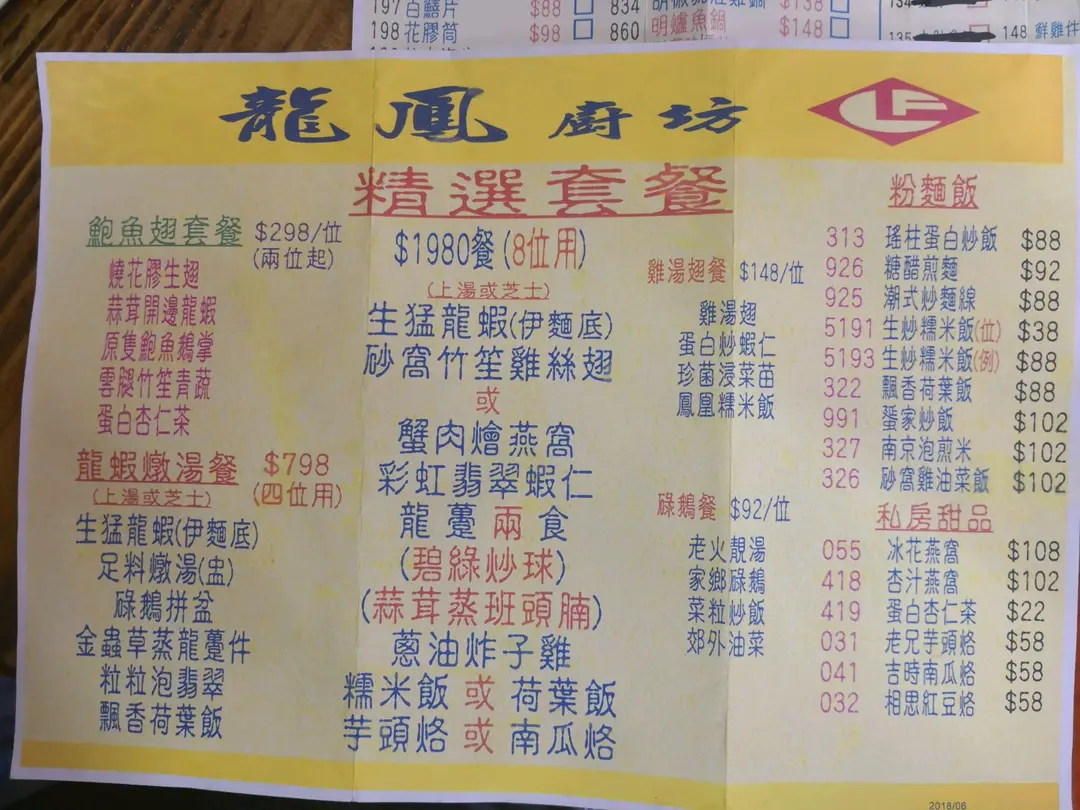 197 白鱔片 $88 834
198 花膠筒 $98 860 明爐魚鍋 $148 148 鮮雞件
龍鳳廚坊 LF
精選套餐
鮑魚翅套餐 $298/位
(兩位起)
燒花膠生翅
蒜茸開邊龍蝦
原隻鮑魚鵝掌
雲腿竹笙青蔬
蛋白杏仁茶
龍蝦燉湯餐 $798
(上湯或芝士) (四位用)
生猛龍蝦(伊麵底)
足料燉湯(盅)
碌鵝拼盆
金蟲草蒸龍躉件
粒粒泡翡翠
飄香荷葉飯
$1980餐(8位用)
(上湯或芝士)
生猛龍蝦(伊麵底)
砂窩竹笙雞絲翅
或
蟹肉燴燕窩
彩虹翡翠蝦仁
龍躉兩食
(碧綠炒球)
(蒜茸蒸班頭腩)
蔥油炸子雞
糯米飯或荷葉飯
芋頭烙或南瓜烙
雞湯翅餐 $148/位
雞湯翅
蛋白炒蝦仁
珍菌浸菜苗
鳳凰糯米飯
碌鵝餐 $92/位
老火靚湯
家鄉碌鵝
菜粒炒飯
郊外油菜
粉麵飯
313 瑤柱蛋白炒飯 $88
926 糖醋煎麵 $92
925 潮式炒麵線 $88
5191 生炒糯米飯(位) $38
5193 生炒糯米飯(例) $88
322 飄香荷葉飯 $88
991 蜑家炒飯 $102
327 南京泡煎米 $102
326 砂窩雞油菜飯 $102
私房甜品
055 冰花燕窩 $108
418 杏汁燕窩 $102
419 蛋白杏仁茶 $22
031 老兄芋頭烙 $58
041 吉時南瓜烙 $58
032 相思紅豆烙 $58
2018/06